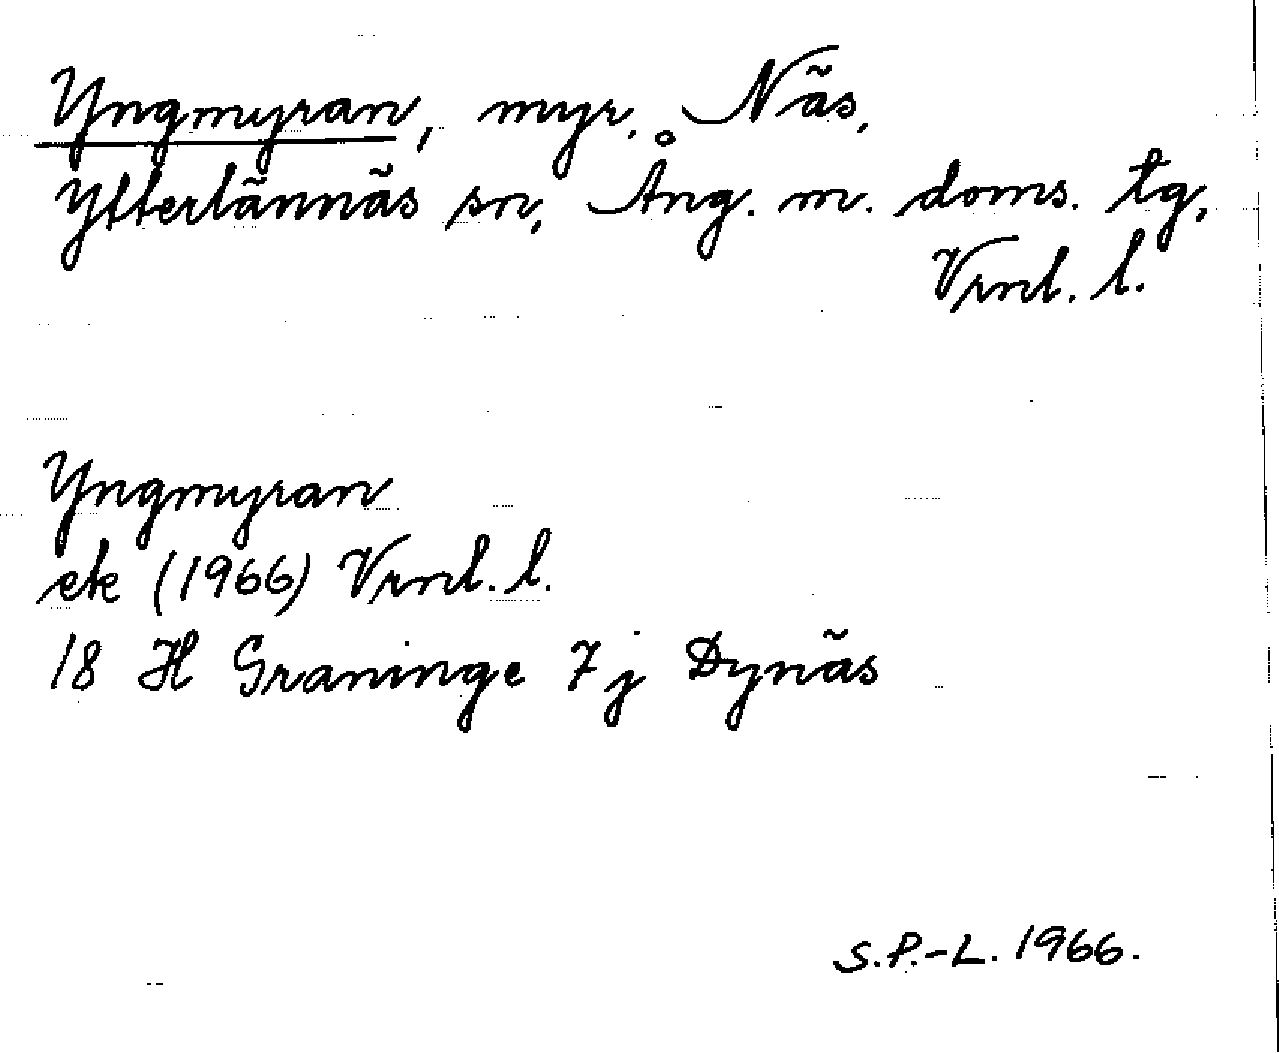 Yngmyran, myr. Näs,
Ytterlännäs sn, Ång. m. doms. tg,
Vrnl. l.
Yngmyran
ek (1966) Vrnl. l.
18 H Graninge 7j Dynäs
S.P.-L. 1966.